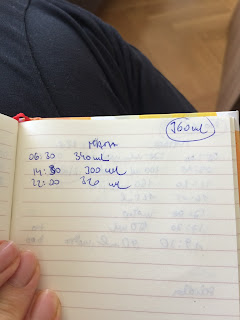 960 ml
MAMA
06:30 340 ml
14:30 300 ml
22:00 320 ml